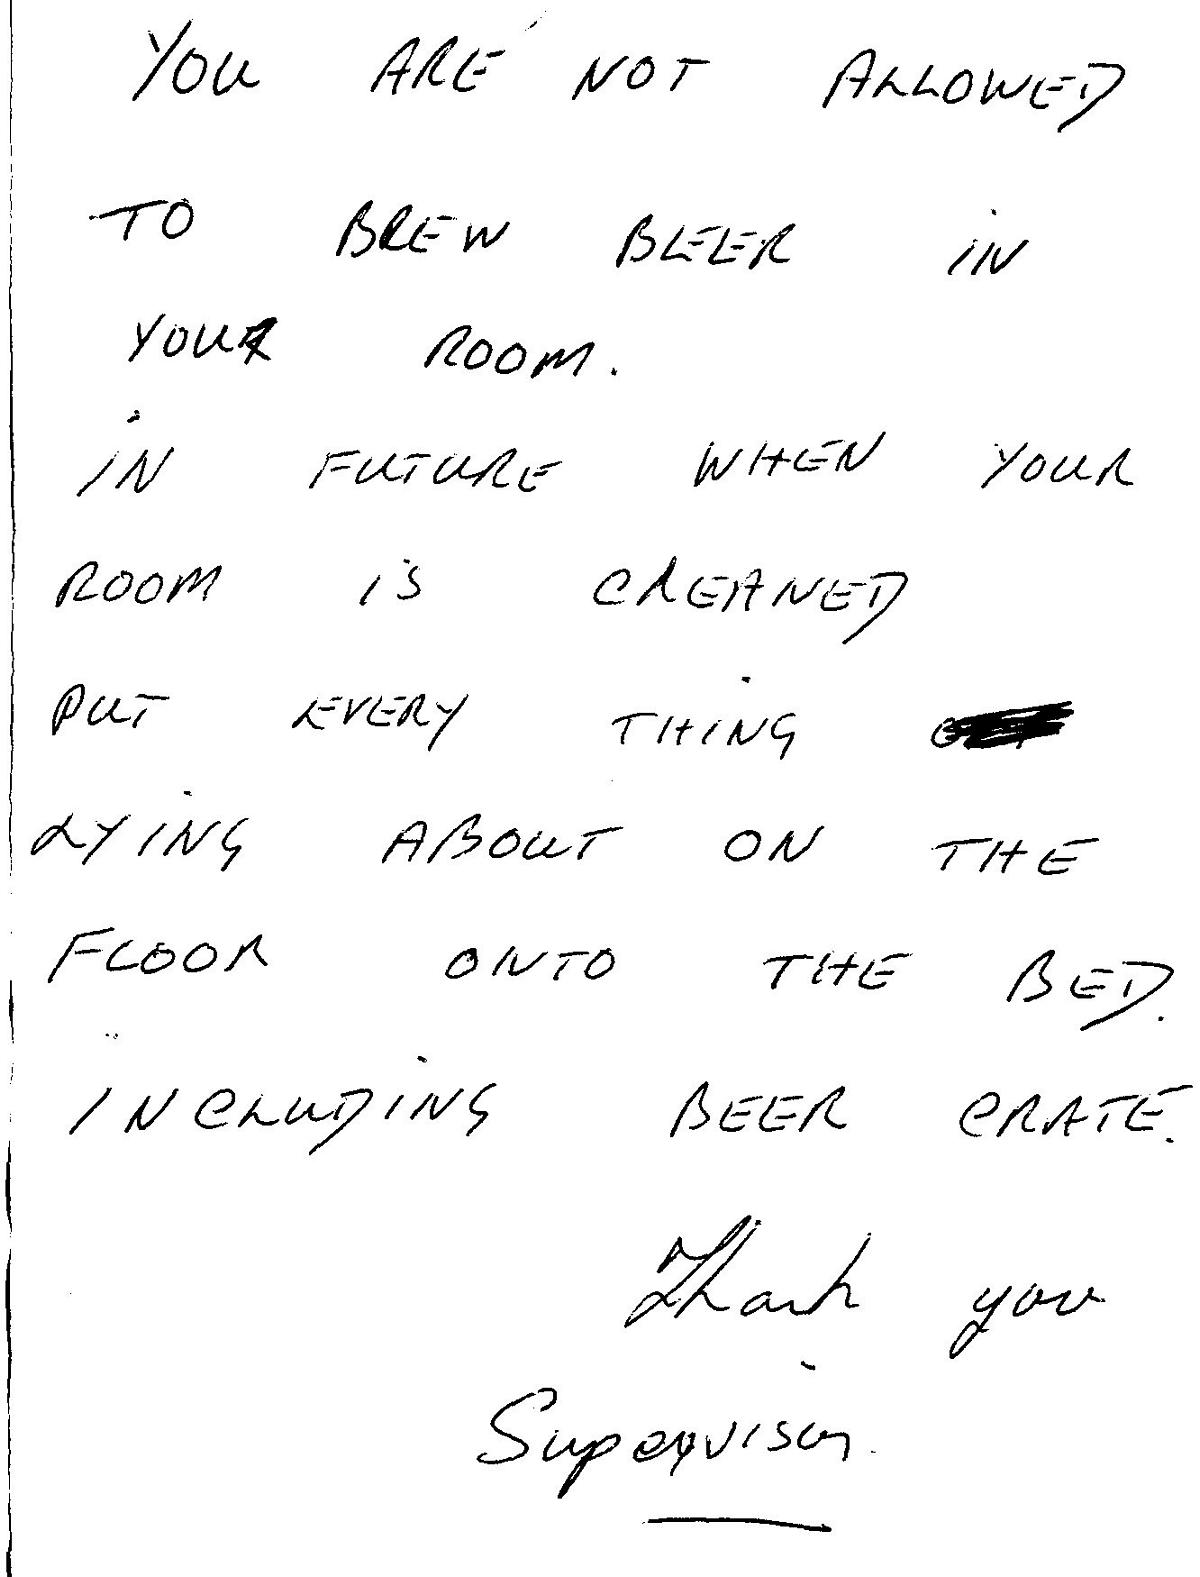 YOU ARE NOT ALLOWED
TO BREW BEER IN
YOUR ROOM.
IN FUTURE WHEN YOUR
ROOM IS CLEANED
PUT EVERY THING
LYING ABOUT ON THE
FLOOR ONTO THE BED.
INCLUDING BEER CRATE.
Thank you
Supervisor.